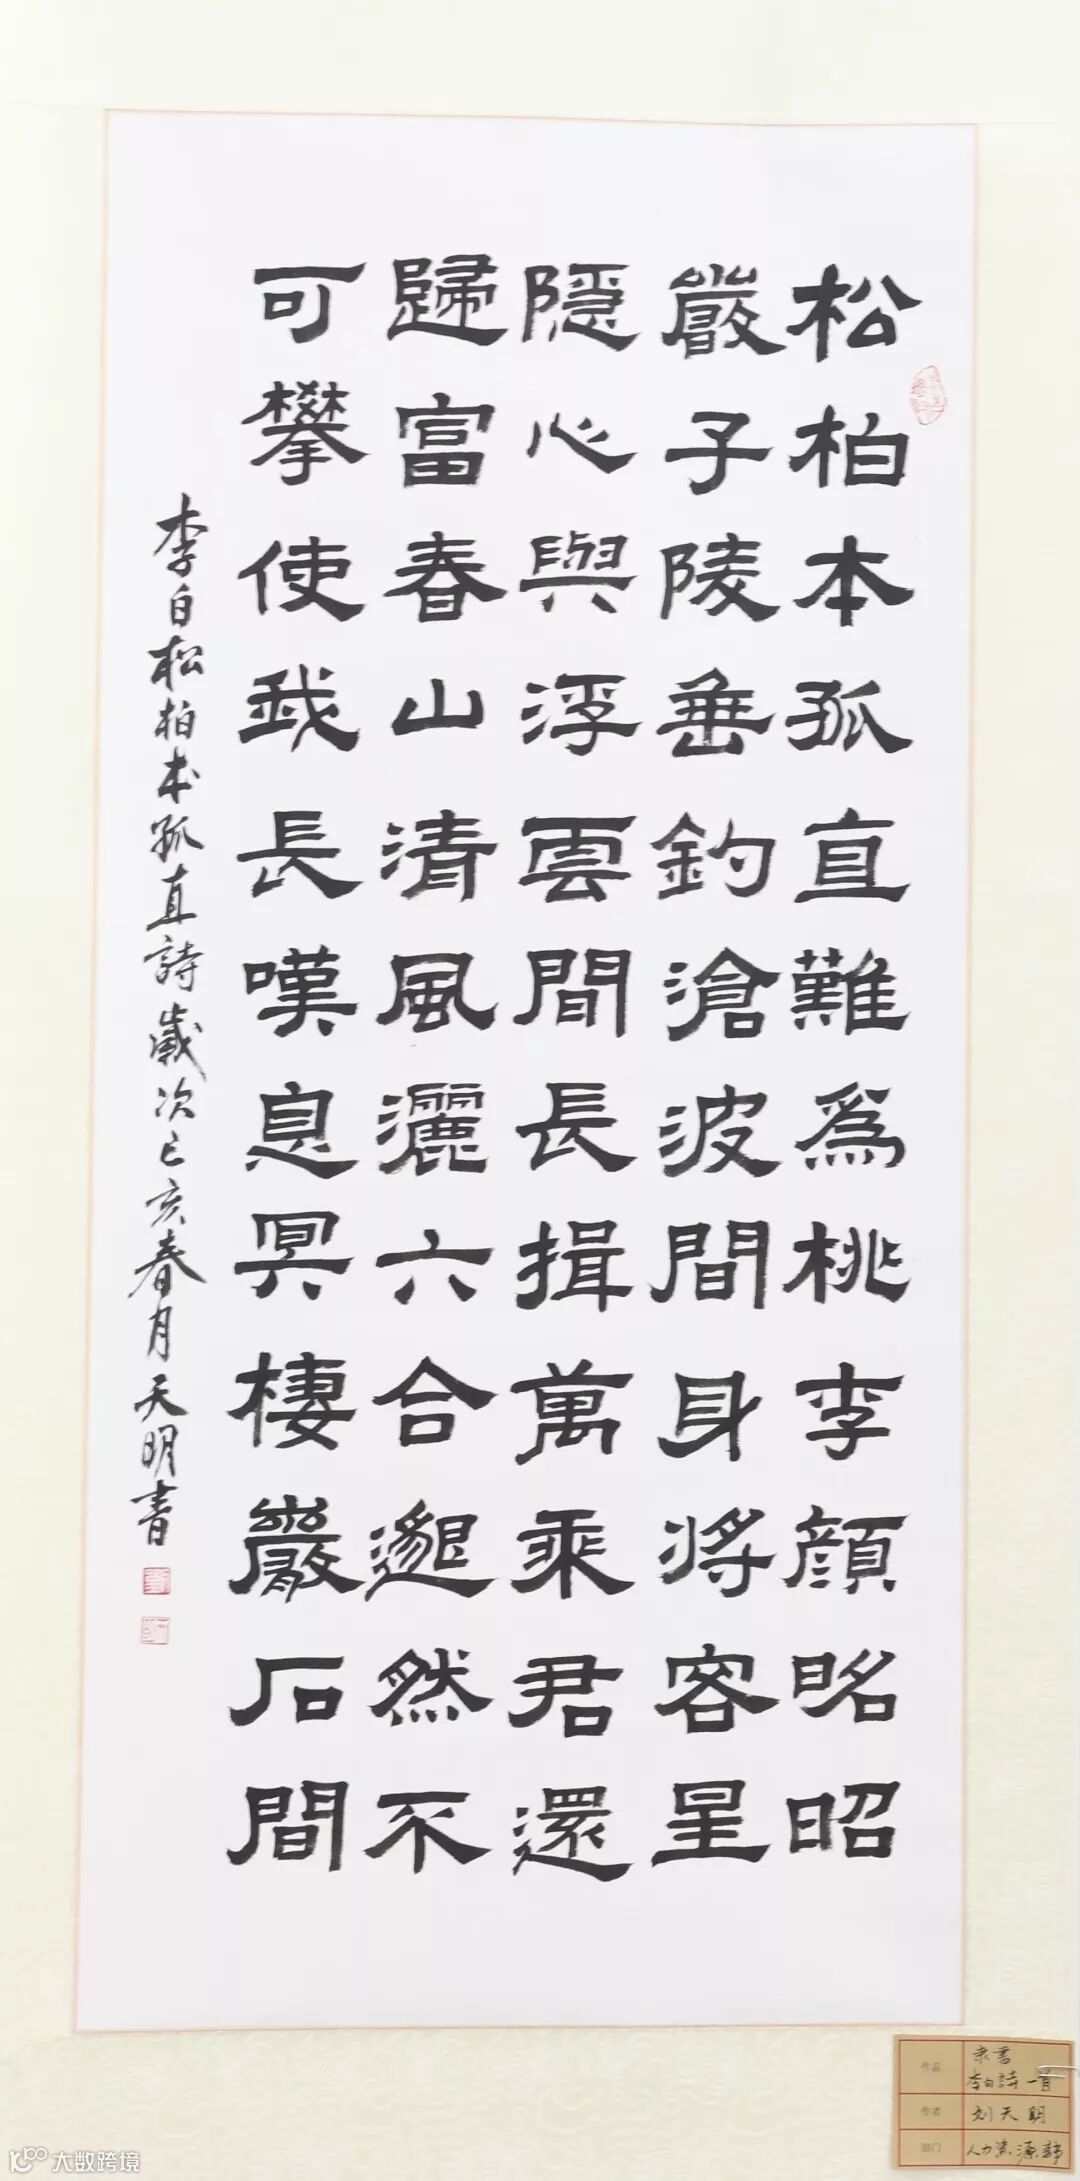 松柏本孤直難為桃李顏昭昭
嚴子陵垂釣滄波間身將客星
隱心與浮雲間長揖萬乘君還
歸富春山清風灑六合邈然不
可攀使我長嘆息冥棲巖石間
李白松柏本孤直詩歲次己亥春月天明書
作品 隶書
李白詩一首
作者 刘天明
部门 人力资源部
大数跨境